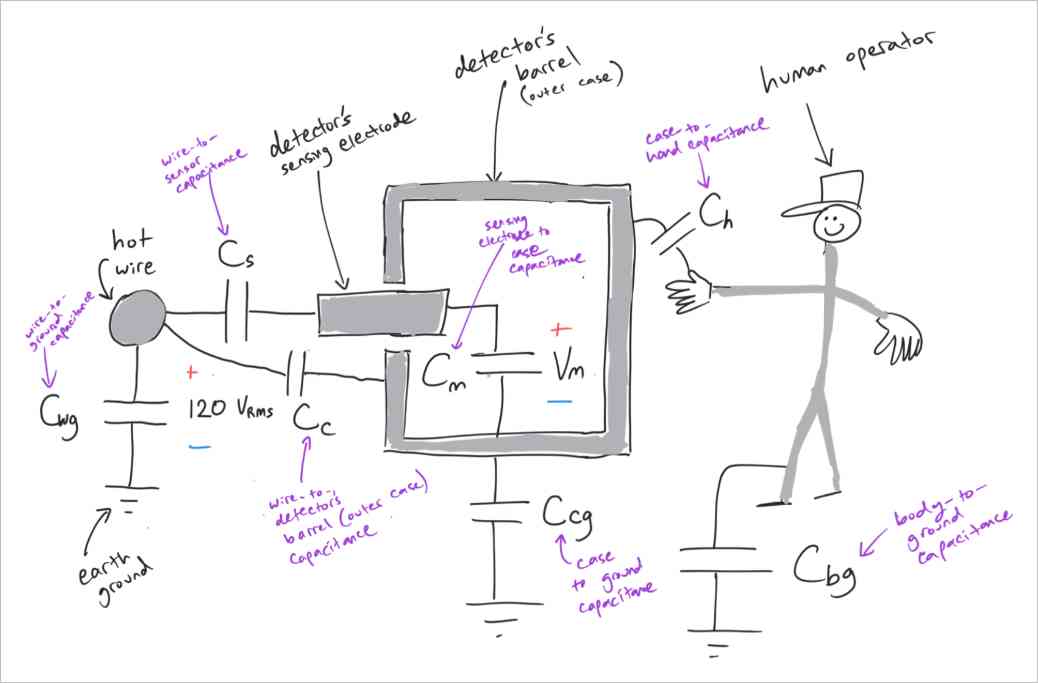 detector's
barrel
(outer case)
human operator
detector's
sensing electrode
wire-to-
sensor
capacitance
case-to-
hand capacitance
Ch
sensing
electrode to
case
capacitance
hot
wire
Cs
wire-to-
ground
capacitance
+
Cm
Vm
−
Cwg
+
120 VRMS
−
Cc
wire-to-
detector's
barrel (outer case)
capacitance
Ccg
case
to ground
capacitance
earth
ground
body-to-
ground
capacitance
Cbg